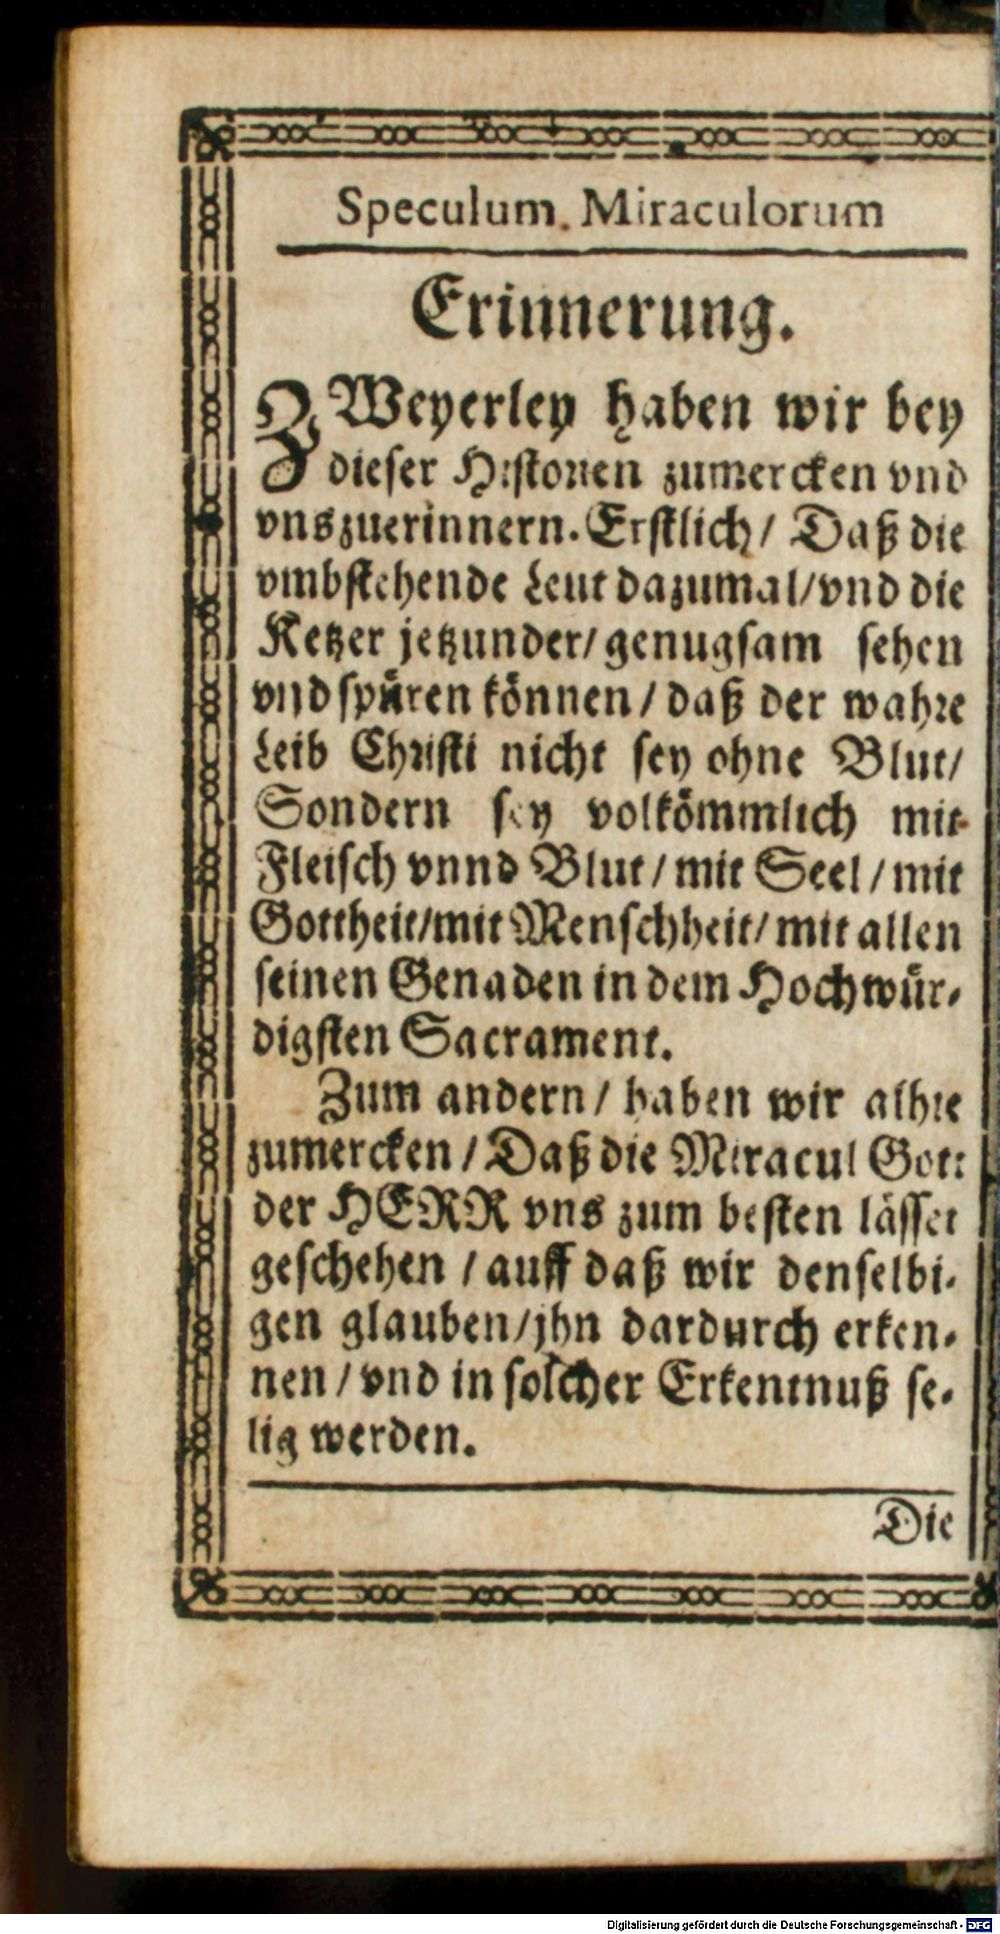 Speculum Miraculorum
Erinnerung.
ZWeyerley haben wir bey
dieser Historien zumercken vnd
vns zuerinnern. Erstlich / Daß die
vmbstehende Leut dazumal / vnd die
Ketzer jetzunder / genugsam sehen
vnd spüren können / daß der wahre
Leib Christi nicht sey ohne Blut /
Sondern sey volkömmlich mit
Fleisch vnnd Blut / mit Seel / mit
Gottheit / mit Menschheit / mit allen
seinen Genaden in dem Hochwür-
digsten Sacrament.
Zum andern / haben wir alhie
zumercken / Daß die Miracul Gott
der HERR vns zum besten lässet
geschehen / auff daß wir denselbi-
gen glauben / jhn dardurch erken-
nen / vnd in solcher Erkentnuß se-
lig werden.
Die
Digitalisierung gefördert durch die Deutsche Forschungsgemeinschaft - DFG